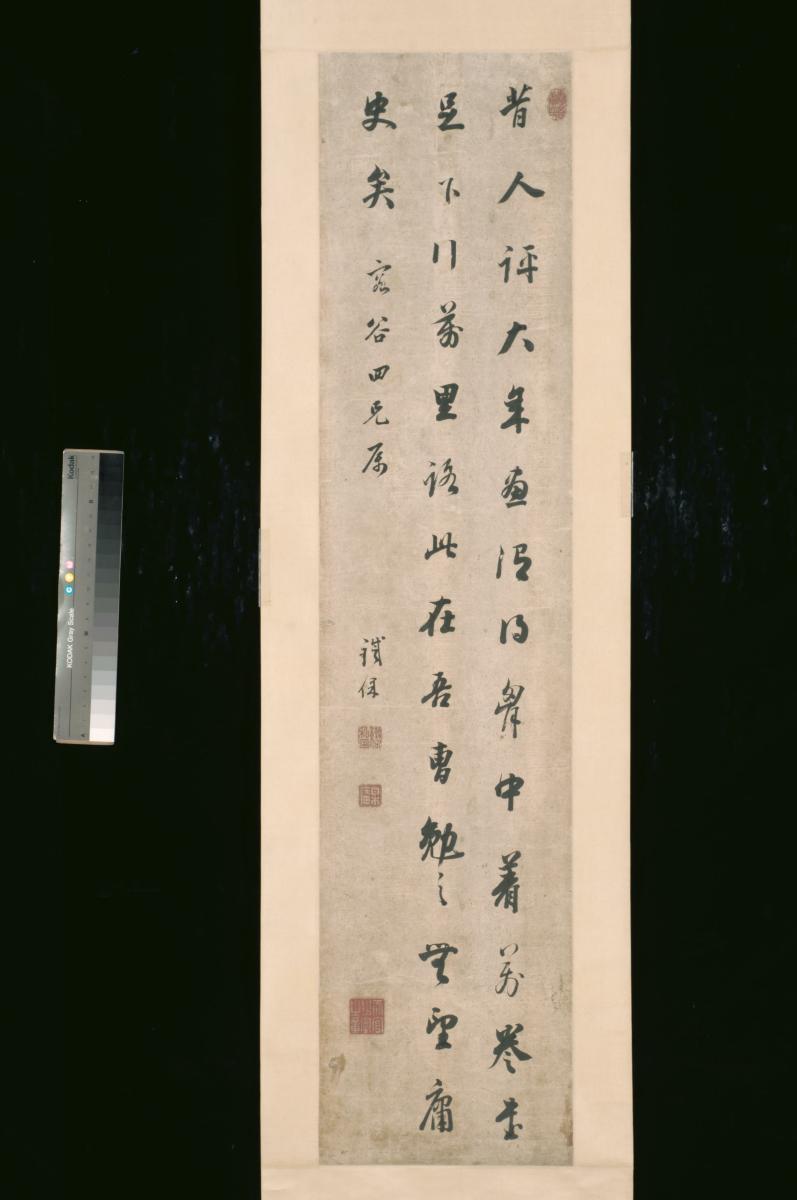 昔人評大年畫謂得胷中着萬卷書
足下行萬里路此在吾曹勉之無望庸
史矣 谷四兄属
鐵保
Kodak
KODAK Gray Scale
C Y M